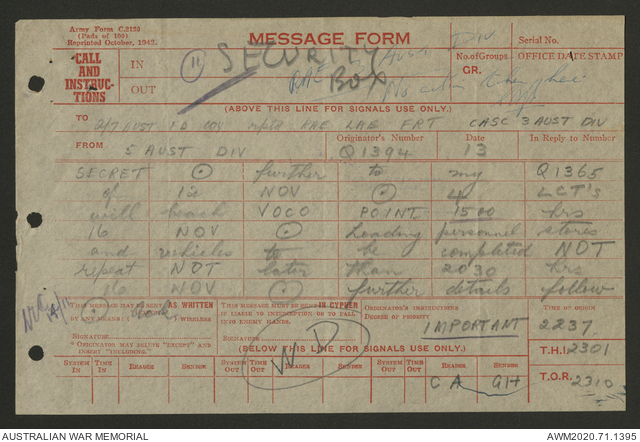 Army Form C.2128
(Pads of 100)
Reprinted October, 1942.
MESSAGE FORM
Serial No.
CALL
AND
INSTRUC-
TIONS
IN
OUT
11
SECURITY
BOX
RAE
DIV
No action taken here
No. of Groups
GR.
OFFICE DATE STAMP
(ABOVE THIS LINE FOR SIGNALS USE ONLY.)
TO 2/7 AUST FD COY rptd RAE LAE FRT CASC 3 AUST DIV
FROM 5 AUST DIV
Originator's Number Q1394
Date 13
In Reply to Number
SECRET . further to my Q1365
of 12 NOV . 4 LCT's
will beach VOCO POINT 1500 hrs
16 NOV . Loading personnel stores
and vehicles to be completed NOT
repeat NOT later than 2030 hrs
16 NOV . further details follow
THIS MESSAGE MAY BE SENT AS WRITTEN
BY ANY MEANS WIRELESS
SIGNATURE
* ORIGINATOR MAY DELETE "EXCEPT" AND
INSERT "INCLUDING."
THIS MESSAGE MUST BE SENT IN CYPHER
IF LIABLE TO INTERCEPTION OR TO FALL
INTO ENEMY HANDS.
SIGNATURE
WD
ORIGINATOR'S INSTRUCTIONS
DEGREE OF PRIORITY
IMPORTANT
TIME OF ORIGIN
2237
(BELOW THIS LINE FOR SIGNALS USE ONLY.)
T.H.I. 2301
SYSTEM IN TIME IN READER SENDER SYSTEM OUT TIME OUT READER SENDER SYSTEM OUT TIME OUT READER SENDER
CA GH
T.O.R. 2310
AUSTRALIAN WAR MEMORIAL
AWM2020.71.1395